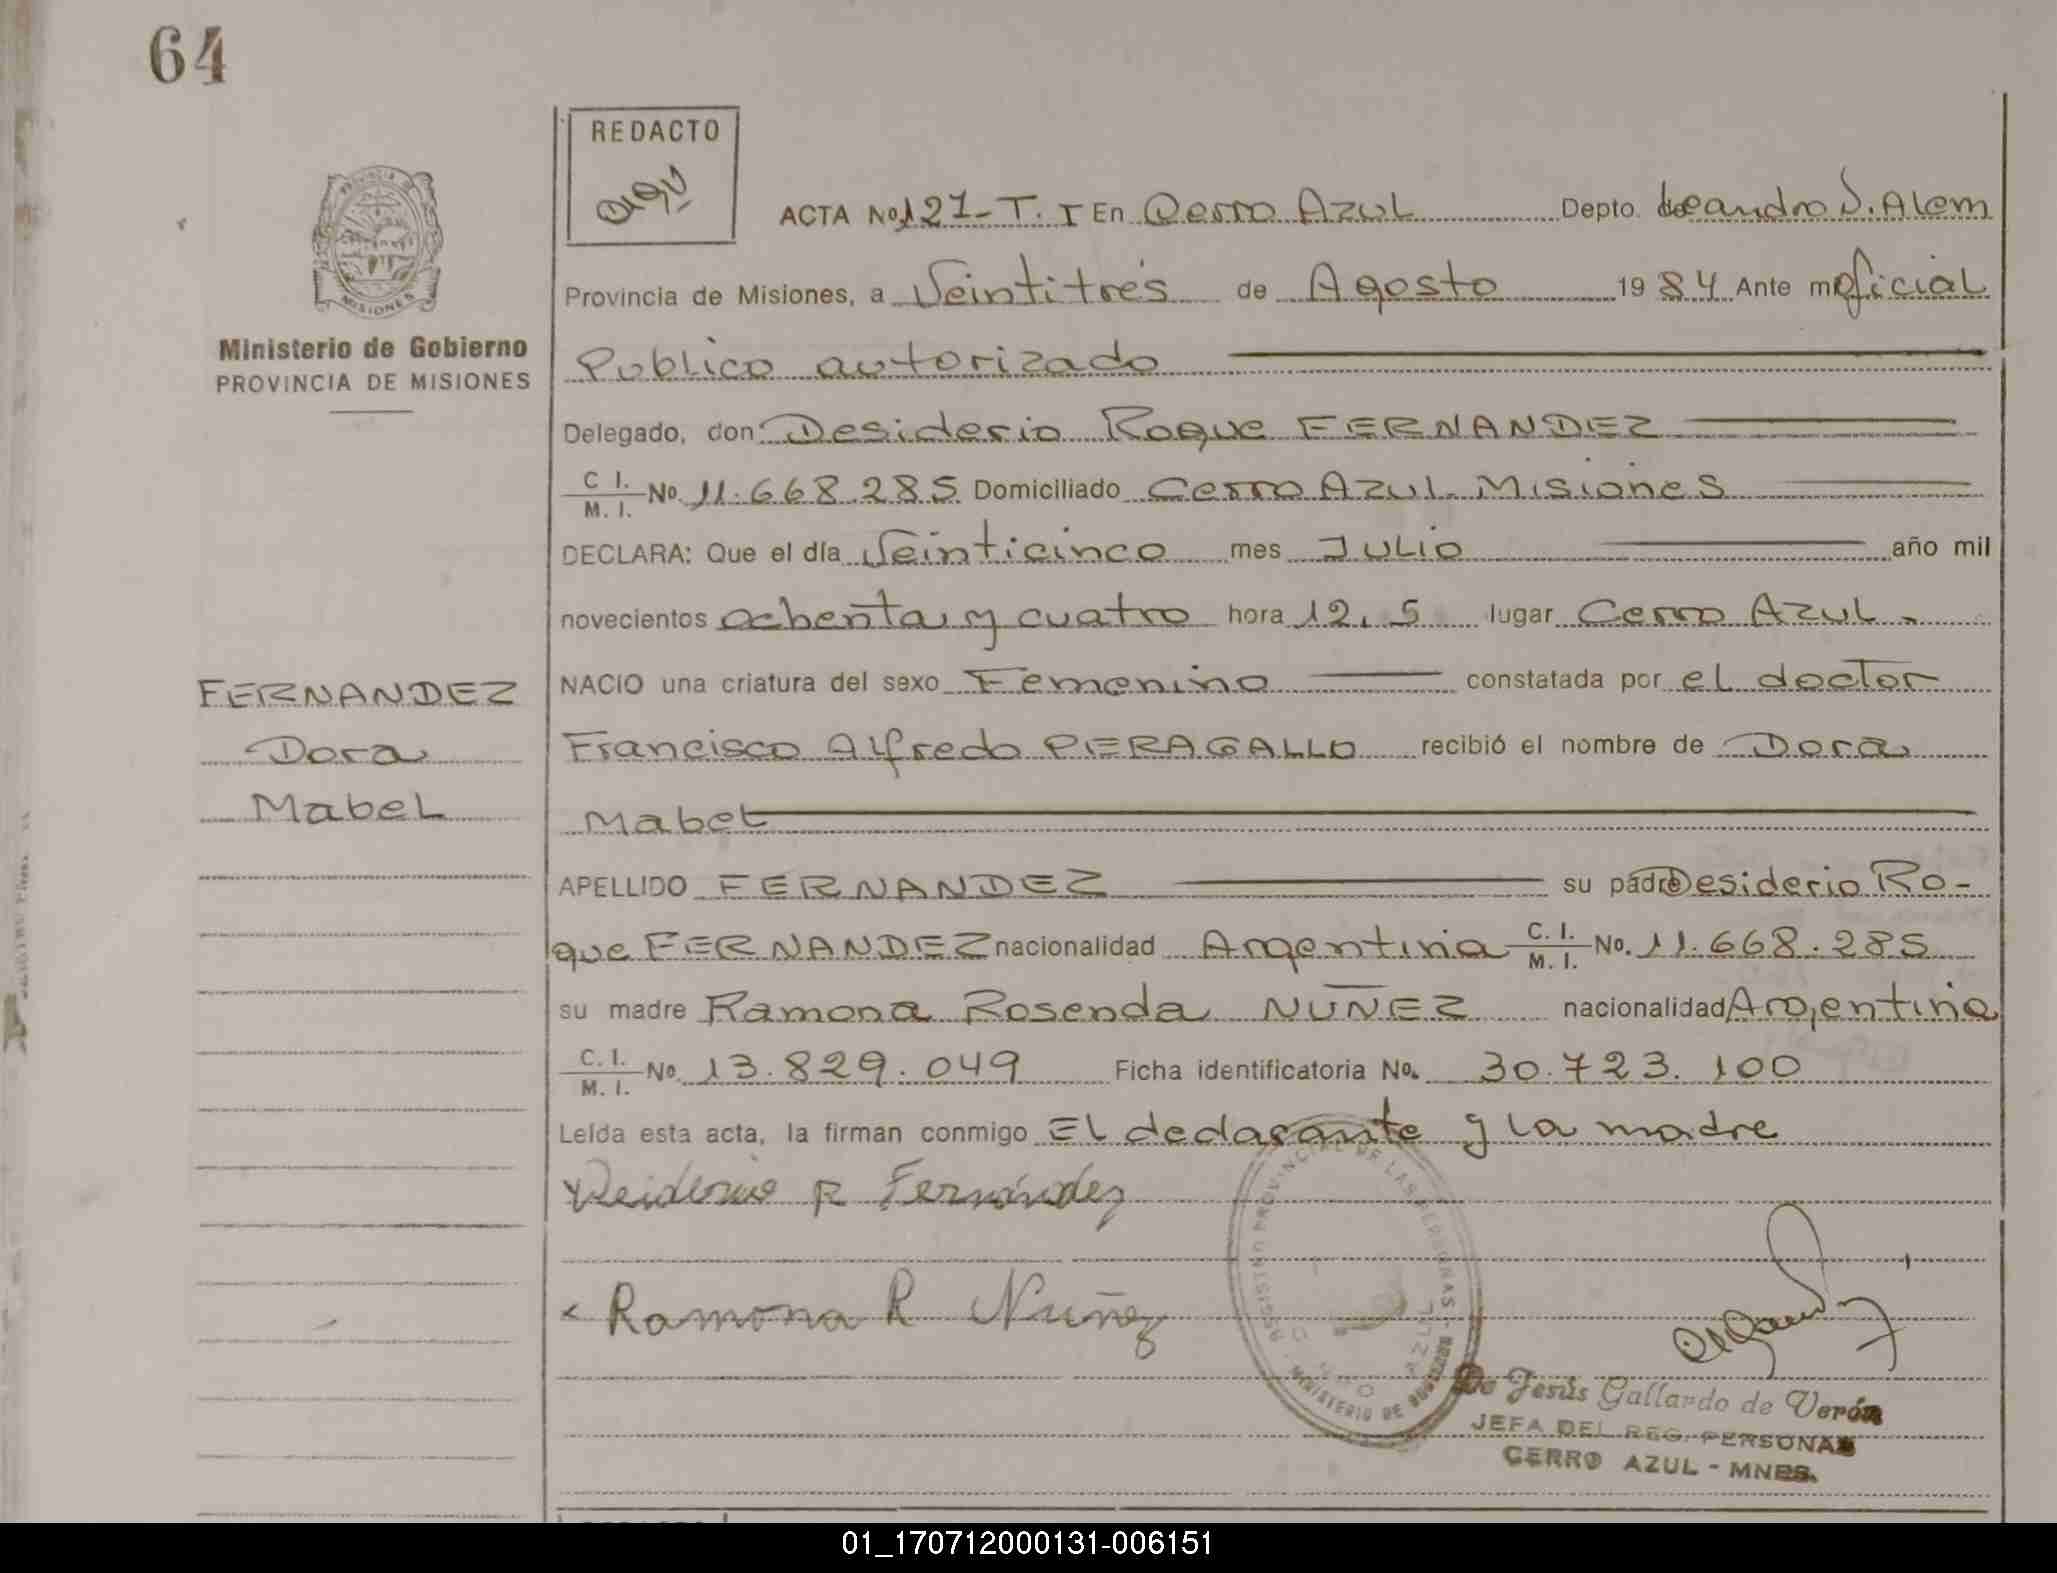 64
REDACTO
ACTA No 121-T. I En Cerro Azul Depto. Leandro N. Alem
PROVINCIA DE MISIONES
Provincia de Misiones, a Veintitrés de Agosto 1984 Ante mi Oficial
Ministerio de Gobierno
PROVINCIA DE MISIONES
Publico autorizado
Delegado, don Desiderio Roque FERNANDEZ
C I. M. I. No. 11.668.285 Domiciliado Cerro Azul Misiones
DECLARA: Que el día Veinticinco mes Julio año mil
novecientos ochenta y cuatro hora 12,5 lugar Cerro Azul.
FERNANDEZ
Dora
Mabel
NACIO una criatura del sexo Femenino constatada por el doctor
Francisco Alfredo PIERAGALLO recibió el nombre de Dora
Mabel
APELLIDO FERNANDEZ su padre Desiderio Ro-
que FERNANDEZ nacionalidad Argentina C. I. M. I. No. 11.668.285
su madre Ramona Rosenda NUÑEZ nacionalidad Argentina
C. I. M. I. No. 13.829.049 Ficha identificatoria No. 30.723.100
Leída esta acta, la firman conmigo El declarante y la madre
Desiderio R Fernández
Ramona R Nuñez
REGISTRO PROVINCIAL DE LAS PERSONAS
MINISTERIO DE GOBIERNO
CERRO AZUL
De Jesús Gallardo de Verón
JEFA DEL REG. PERSONAS
CERRO AZUL - MNES.
01_170712000131-006151